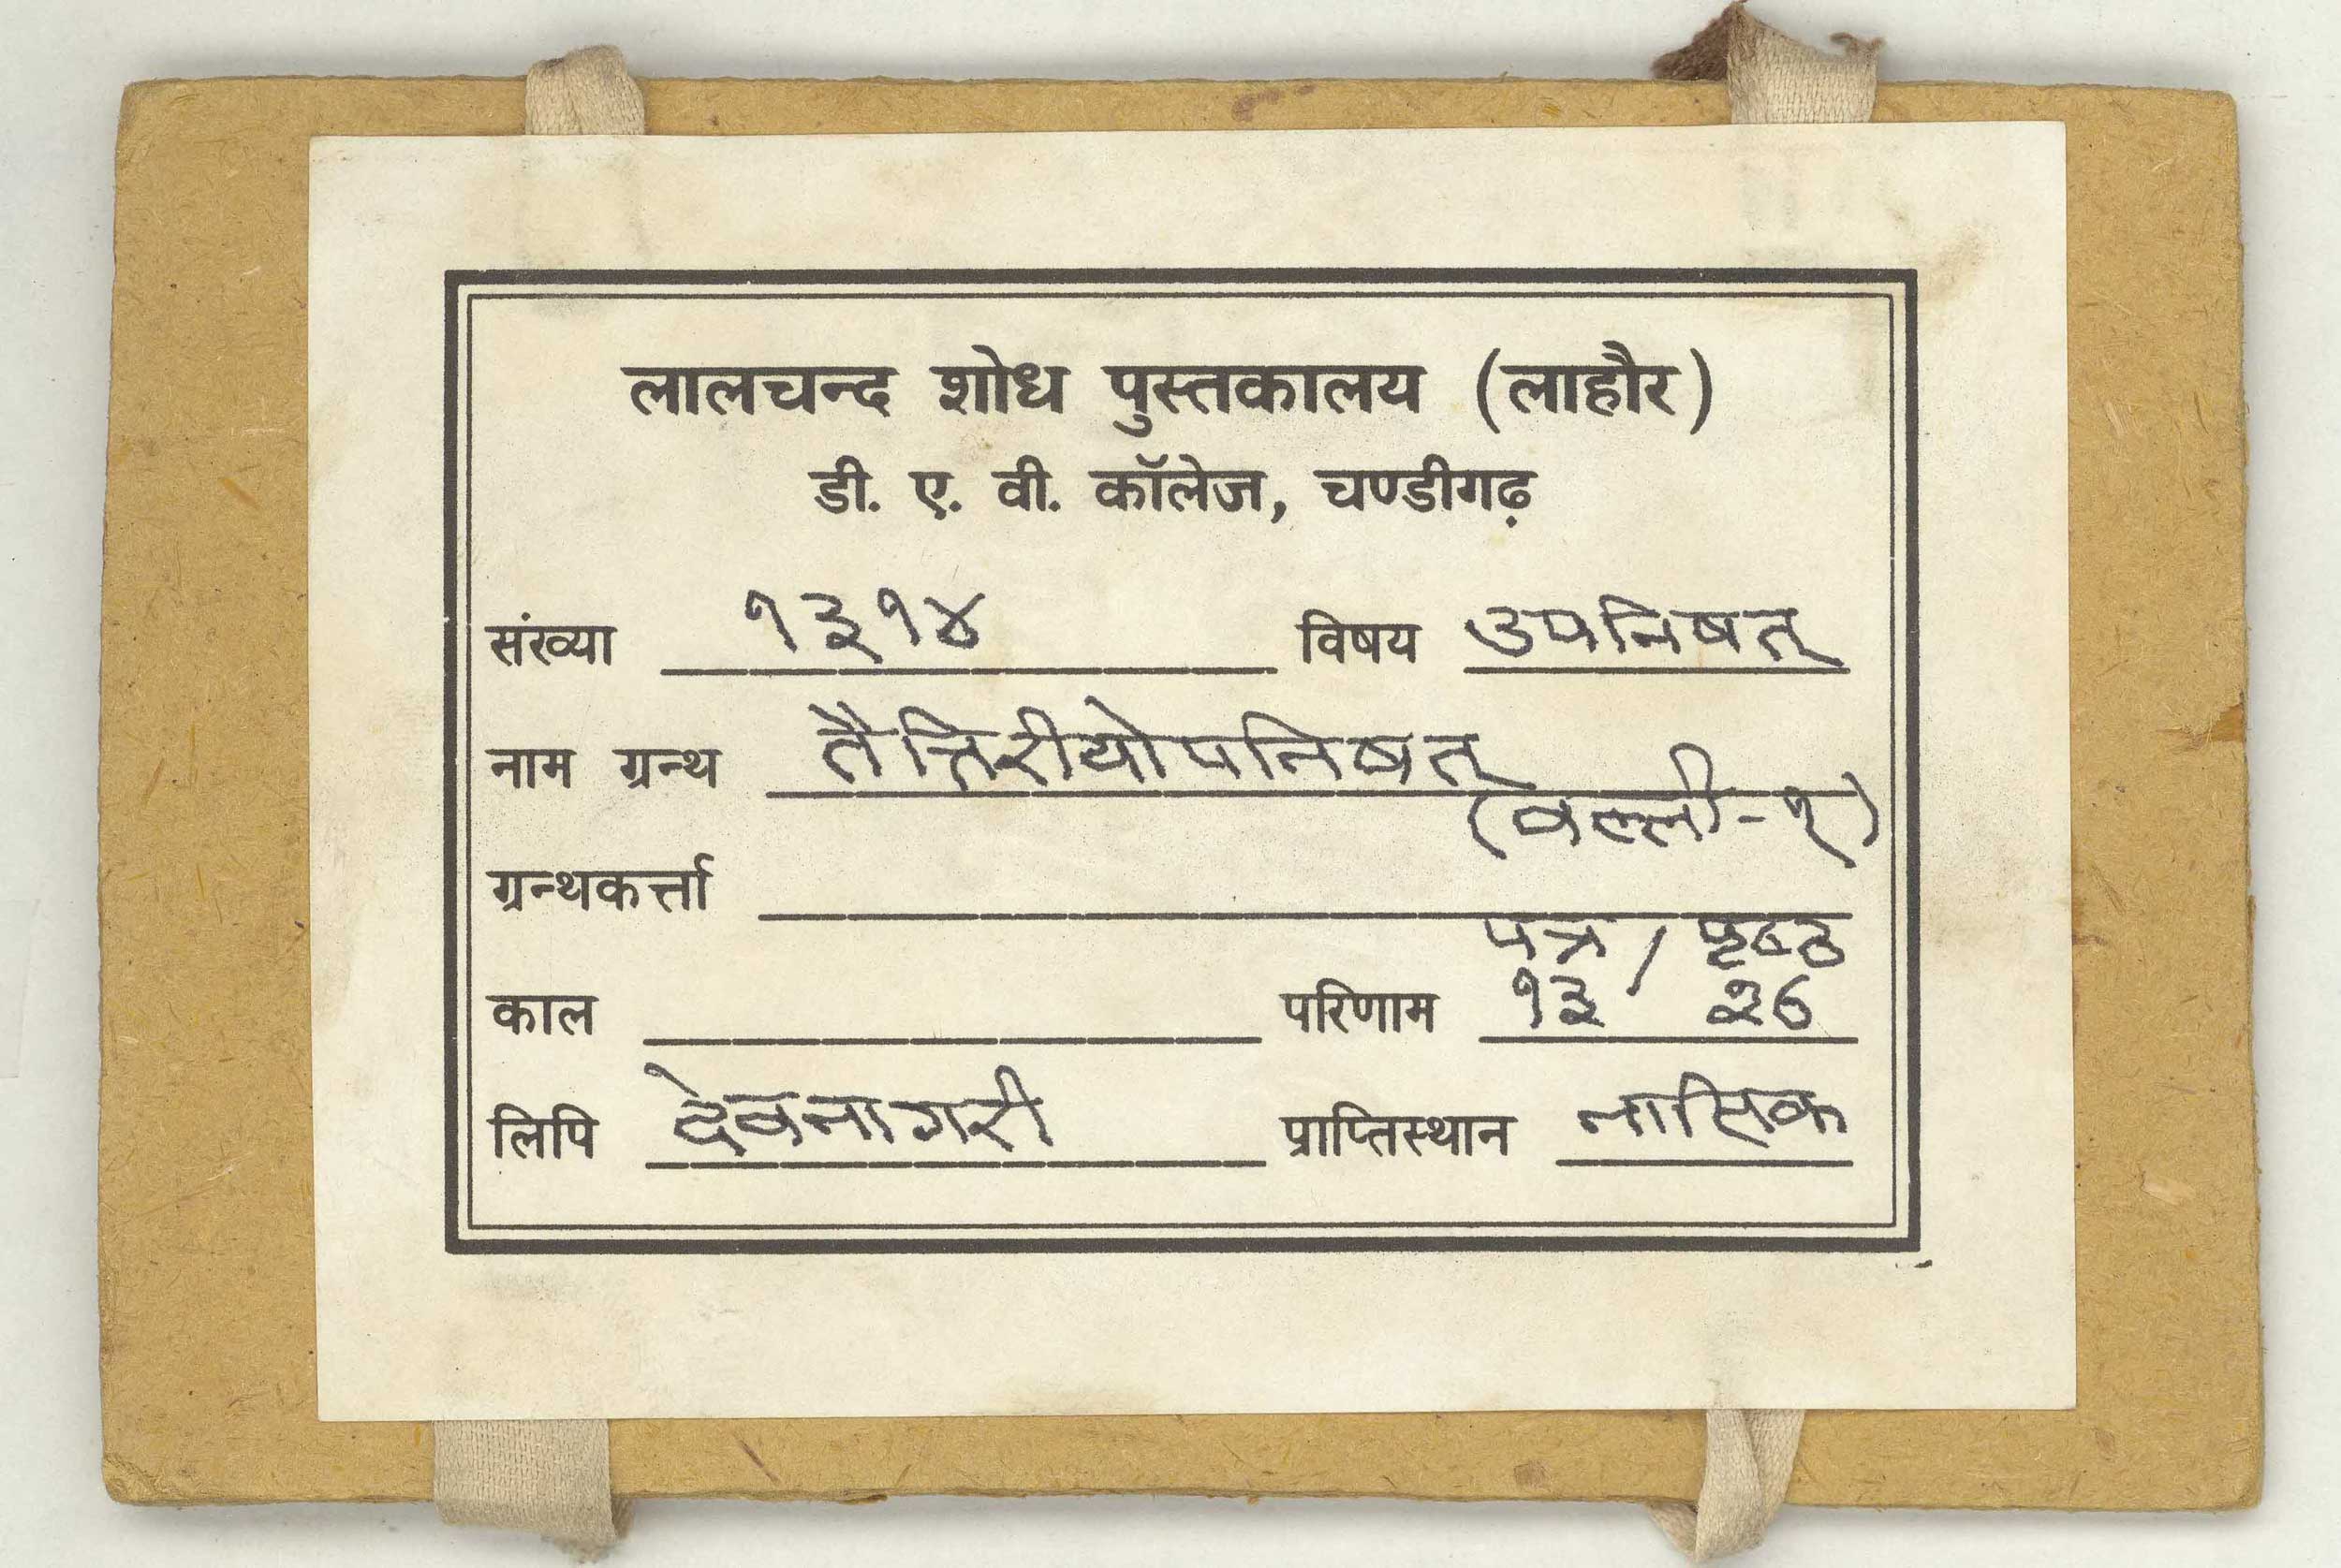 लालचन्द शोध पुस्तकालय (लाहौर)
डी. ए. वी. कॉलेज, चण्डीगढ़
संख्या १३१४ विषय उपनिषत्
नाम ग्रन्थ तैत्तिरीयोपनिषत्
(वल्ली-१)
ग्रन्थकर्त्ता
पत्र / पृष्ठ
काल परिणाम १३ / २६
लिपि देवनागरी प्राप्तिस्थान नासिक